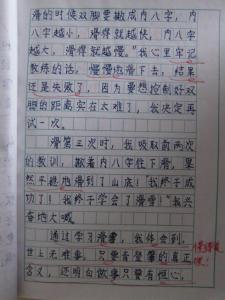 滑的时候双脚要撇成内八字,内
八字越小,滑得就越快,内八字
越大,滑得就越慢。”我心里牢记
教练的话,慢慢地滑下去,结果
还是失败了,因为要想控制好双
腿的距离实在太难了,我决定再
试一次。
滑第三次时,我吸取前两次
的教训,撇着内八字往下滑,果
然平稳地滑到了山底!“我终于成
功了!我终于学会了滑雪!”我兴
奋地大喊。
通过学习滑雪,我体会到,
世上无难事,只要肯登攀的真正
含义,还明白做事只要有恒心,